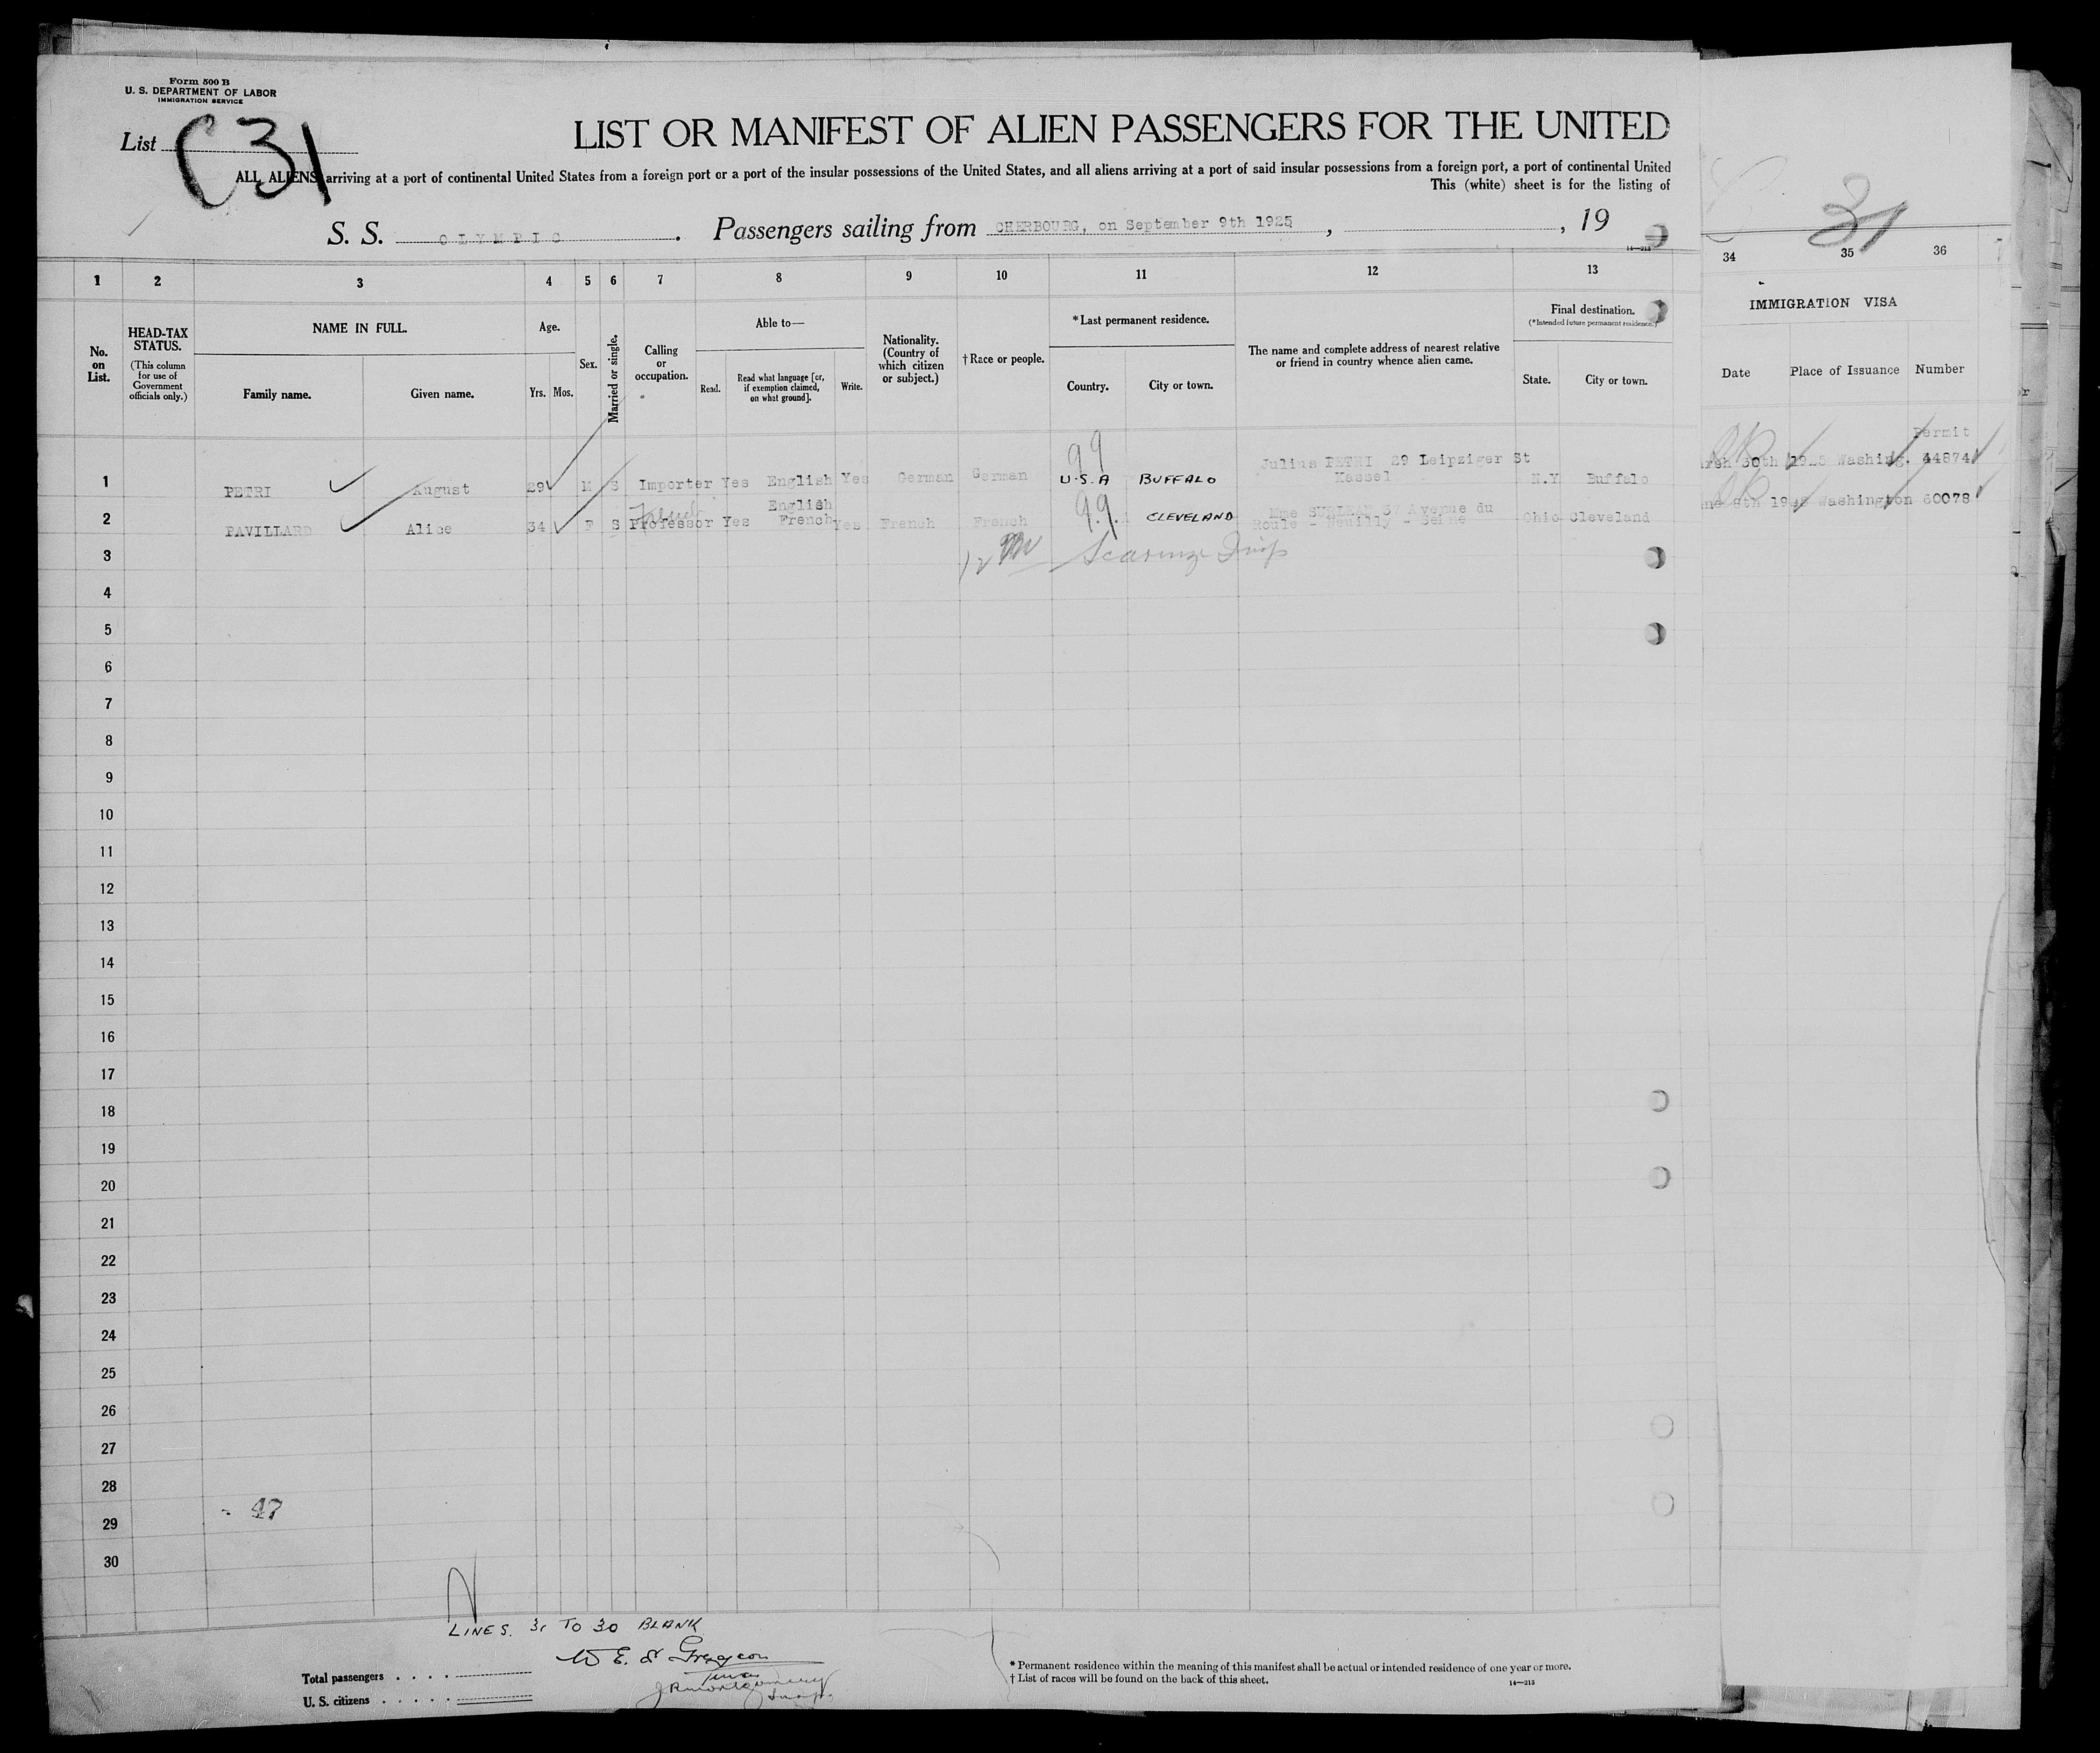 Form 500 B
U. S. DEPARTMENT OF LABOR
IMMIGRATION SERVICE
List C 31
LIST OR MANIFEST OF ALIEN PASSENGERS FOR THE UNITED
ALL ALIENS arriving at a port of continental United States from a foreign port or a port of the insular possessions of the United States, and all aliens arriving at a port of said insular possessions from a foreign port, a port of continental United
This (white) sheet is for the listing of
S. S. OLYMPIC. Passengers sailing from CHERBOURG, on September 9th 1925, , 19
14—213
31
1 2 3 4 5 6 7 8 9 10 11 12 13 34 35 36
No. on List.
HEAD-TAX STATUS.
(This column for use of Government officials only.)
NAME IN FULL.
Family name. Given name.
Age.
Yrs. Mos.
Sex.
Married or single.
Calling or occupation.
Able to—
Read. Read what language [or, if exemption claimed, on what ground]. Write.
Nationality. (Country of which citizen or subject.)
†Race or people.
*Last permanent residence.
Country. City or town.
The name and complete address of nearest relative or friend in country whence alien came.
Final destination.
(*Intended future permanent residence.)
State. City or town.
IMMIGRATION VISA
Date Place of Issuance Number
99
Permit
1 PETRI August 29 M S Importer Yes English Yes German German U.S.A BUFFALO Julius PETRI 29 Leipziger St Kassel N.Y Buffalo 30th 1925 Washing. 44874
2 PAVILLARD Alice 34 F S Professor Yes English French Yes French French 9.9. CLEVELAND Mme 67 Avenue du Roule - Neuilly - Seine Ohio Cleveland 8th 1925 Washington 60078
3
4
5
6
7
8
9
10
11
12
13
14
15
16
17
18
19
20
21
22
23
24
25
26
27
28
47
29
30
LINES. 3 TO 30 BLANK
Total passengers
U. S. citizens
* Permanent residence within the meaning of this manifest shall be actual or intended residence of one year or more.
† List of races will be found on the back of this sheet.
14—213